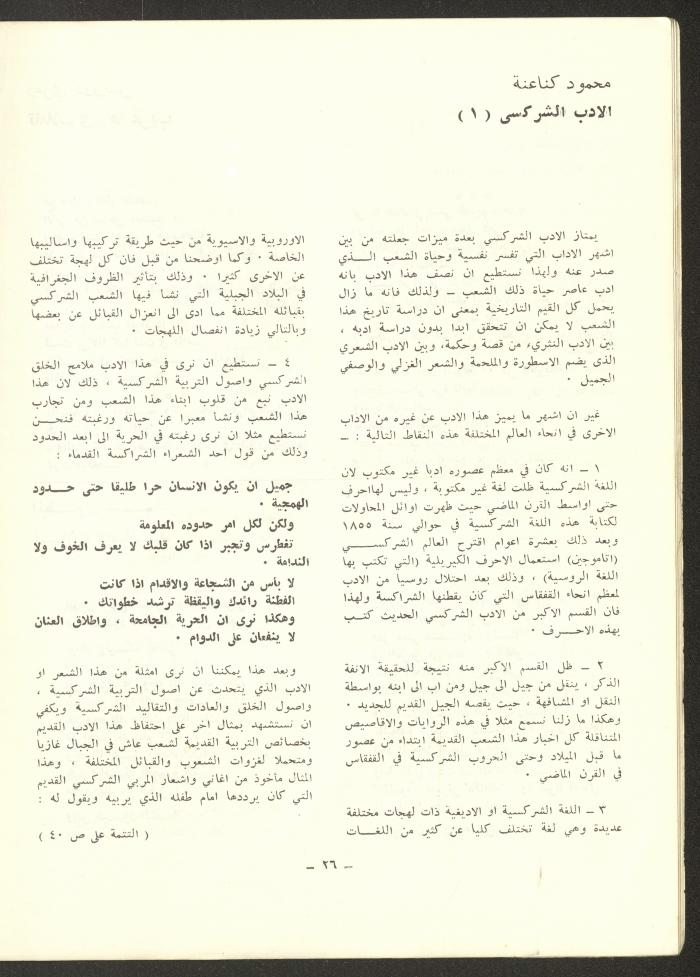 محمود كناعنة
الادب الشركسي ( ١ )
يمتاز الادب الشركسي بعدة ميزات جعلته من بين
اشهر الاداب التي تفسر نفسية وحياة الشعب الــذي
صدر عنه ولهذا نستطيع ان نصف هذا الادب بانه
ادب عاصر حياة ذلك الشعب ــ ولذلك فانه ما زال
يحمل كل القيم التاريخية بمعنى ان دراسة تاريخ هذا
الشعب لا يمكن ان تتحقق ابدا بدون دراسة ادبه ،
بين الادب النثريء من قصة وحكمة، وبين الادب الشعري
الذى يضم الاسطورة والملحمة والشعر الغزلي والوصفي
الجميل .
غير ان اشهر ما يميز هذا الادب عن غيره من الاداب
الاخرى في انحاء العالم المختلفة هذه النقاط التالية : ــ
١ ــ انه كان في معظم عصوره ادبا غير مكتوب لان
اللغة الشركسية ظلت لغة غير مكتوبة ، وليس لهااحرف
حتى اواسط القرن الماضي حيث ظهرت اوائل المحاولات
لكتابة هذه اللغة الشركسية في حوالي سنة ١٨٥٥
وبعد ذلك بعشرة اعوام اقترح العالم الشركســـي
(اتاموجين) استعمال الاحرف الكيريلية (التي تكتب بها
اللغة الروسية) ، وذلك بعد احتلال روسيا من الادب
لمعظم انحاء القفقاس التي كان يقطنها الشراكسة ولهذا
فان القسم الاكبر من الادب الشركسي الحديث كتــب
بهذه الاحــرف .
٢ ــ ظل القسم الاكبر منه نتيجة للحقيقة الانفة
الذكر ، ينقل من جيل الى جيل ومن اب الى ابنه بواسطة
النقل او المشافهة ، حيث يقصه الجيل القديم للجديد .
وهكذا ما زلنا نسمع مثلا في هذه الروايات والاقاصيص
المتناقلة كل اخبار هذا الشعب القديمة ابتداء من عصور
ما قبل الميلاد وحتى الحروب الشركسية في القفقاس
في القرن الماضي .
٣ ــ اللغة الشركسية او الاديغية ذات لهجات مختلفة
عديدة وهي لغة تختلف كليا عن كثير من اللغــات
الاوروبية والاسيوية من حيث طريقة تركيبها واساليبها
الخاصة . وكما اوضحنا من قبل فان كل لهجة تختلف
عن الاخرى كثيرا . وذلك بتاثير الظروف الجغرافية
في البلاد الجبلية التي نشا فيها الشعب الشركسي
بقبائله المختلفة مما ادى الى انعزال القبائل عن بعضها
وبالتالي زيادة انفصال اللهجات .
٤ ــ نستطيع ان نرى في هذا الادب ملامح الخلق
الشركسي واصول التربية الشركسية ، ذلك لان هذا
الادب نبع من قلوب ابناء هذا الشعب ومن تجارب
هذا الشعب ونشا معبرا عن حياته ورغبته فنحــن
نستطيع مثلا ان نرى رغبته في الحرية الى ابعد الحدود
وذلك من قول احد الشعراء الشراكسة القدماء :
جميل ان يكون الانسان حرا طليقا حتى حـــدود
الهمجية .
ولكن لكل امر حدوده المعلومة
تغطرس وتجبر اذا كان قلبك لا يعرف الخوف ولا
الندامة .
لا بأس من الشجاعة والاقدام اذا كانت
الفطنة رائدك واليقظة ترشد خطواتك .
وهكذا نرى ان الحرية الجامحة ، واطلاق العنان
لا ينفعان على الدوام .
وبعد هذا يمكننا ان نرى امثلة من هذا الشعر او
الادب الذي يتحدث عن اصول التربية الشركسية ،
واصول الخلق والعادات والتقاليد الشركسية ويكفي
ان نستشهد بمثال اخر على احتفاظ هذا الادب القديم
بخصائص التربية القديمة لشعب عاش في الجبال غازيا
ومتحملا لغزوات الشعوب والقبائل المختلفة ، وهذا
المثال مأخوذ من اغاني واشعار المربي الشركسي القديم
التي كان يرددها امام طفله الذي يربيه ويقول له :
( التتمة على ص ٤٠ )
ــ ٢٦ ــ